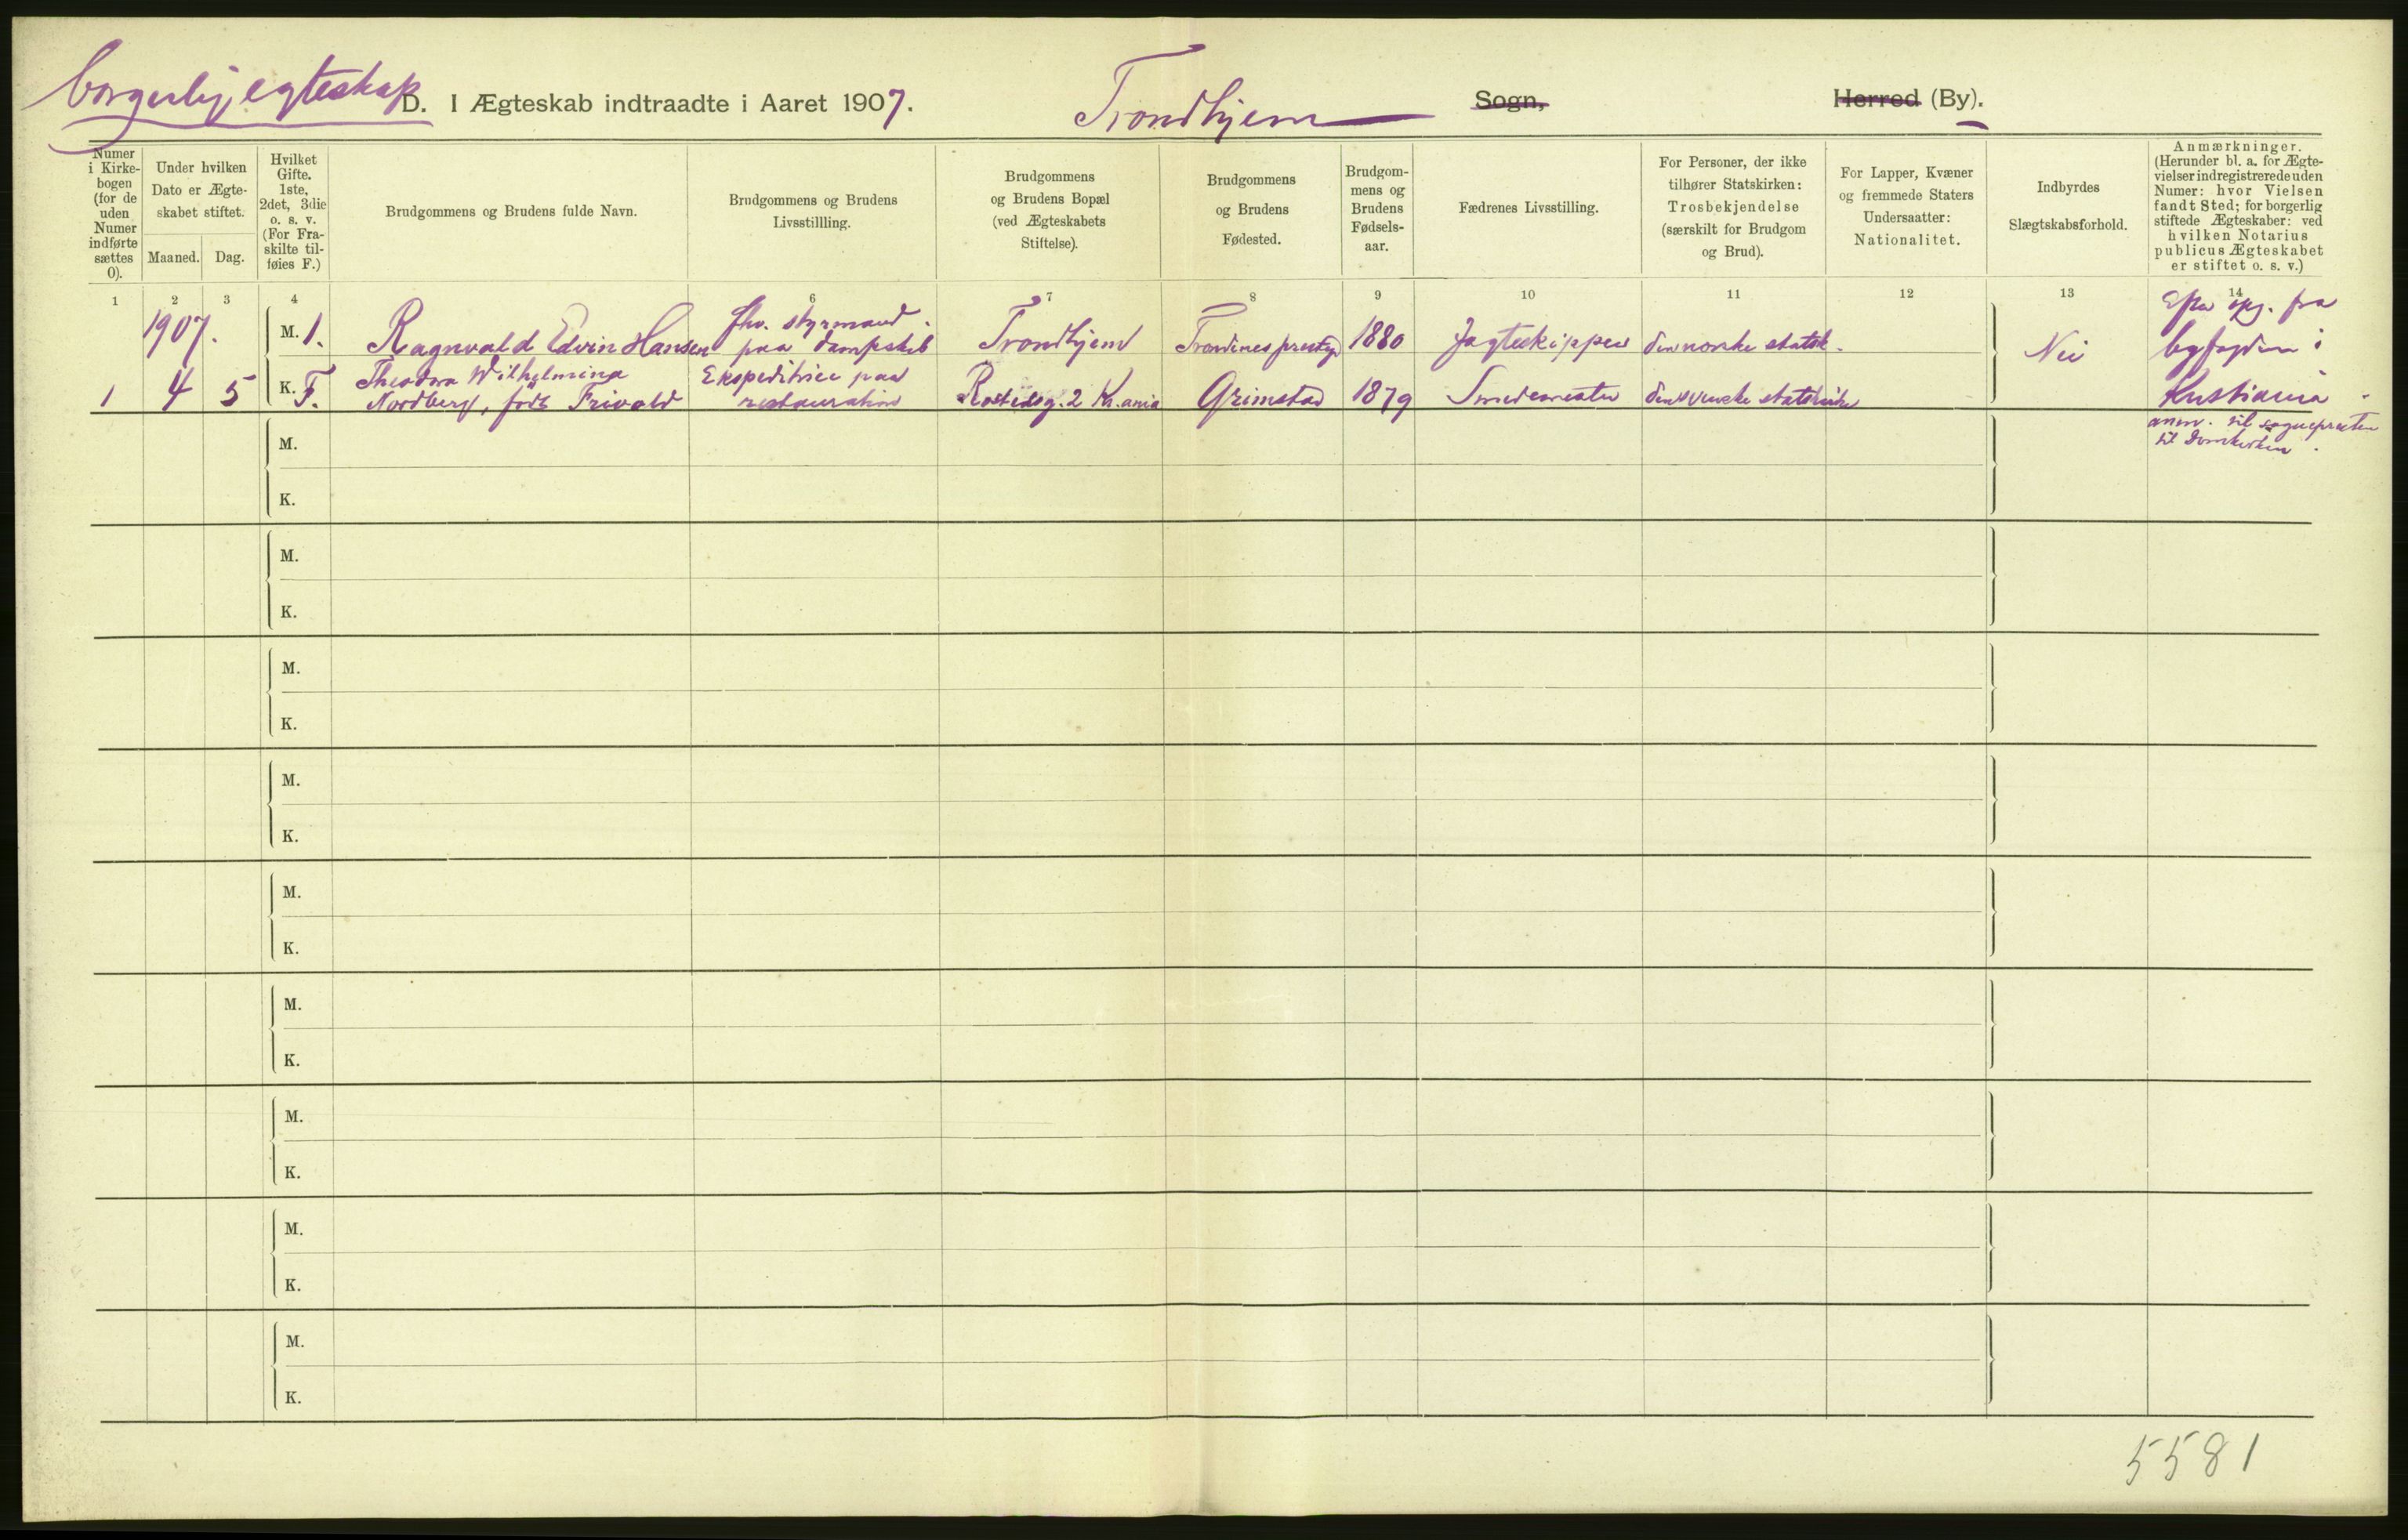 borgerlig egteskap
D. I Ægteskab indtraadte i Aaret 1907. Trondhjem Sogn, Herred (By).
Numer i Kirke-bogen (for de uden Numer indførte sættes 0).
Under hvilken Dato er Ægte-skabet stiftet.
Maaned. Dag.
Hvilket Gifte. 1ste, 2det, 3die o. s. v. (For Fra-skilte til-føies F.)
Brudgommens og Brudens fulde Navn.
Brudgommens og Brudens Livsstillling.
Brudgommens og Brudens Bopæl (ved Ægteskabets Stiftelse).
Brudgommens og Brudens Fødested.
Brudgom-mens og Brudens Fødsels-aar.
Fædrenes Livsstilling.
For Personer, der ikke tilhører Statskirken: Trosbekjendelse (særskilt for Brudgom og Brud).
For Lapper, Kvæner og fremmede Staters Undersaatter: Nationalitet.
Indbyrdes Slægtskabsforhold.
Anmærkninger. (Herunder bl. a. for Ægte-vielser indregistrerede uden Numer: hvor Vielsen fandt Sted; for borgerlig stiftede Ægteskaber: ved hvilken Notarius publicus Ægteskabet er stiftet o. s. v.)
1 2 3 4 6 7 8 9 10 11 12 13 14
1907. M. 1. Ragnvald Edvin Hansen fhv. styrmand paa dampskib Trondhjem Trondenes prestgj 1880 Jagteskipper den norske statsk. Nei
1 4 5 K. F. Theodora Wilhelmina Nordberg, født Frivold Ekspeditrice paa restauration Rostedsg. 2 Kr.ania Grimstad 1879 Smedemester den svenske statskirke
Efter opg. fra
byfogden i
Kristiania.
anm. til sognepresten
til Domkirken.
M.
K.
M.
K.
M.
K.
M.
K.
M.
K.
M.
K.
M.
K.
M.
K.
M.
K.
5581